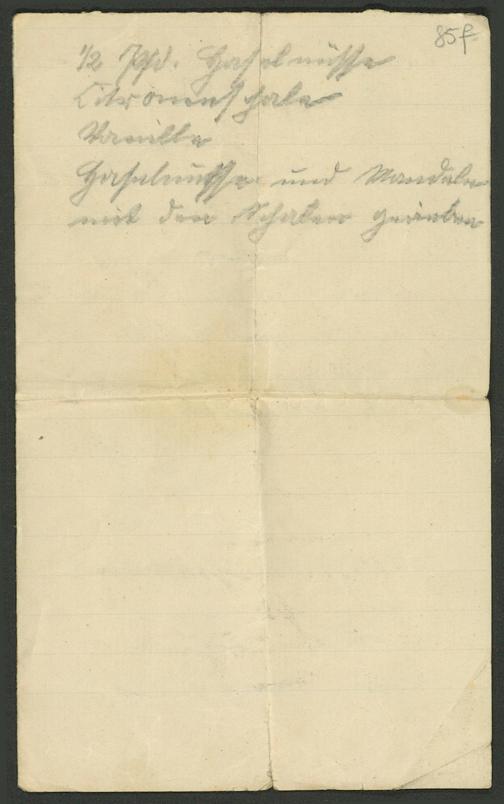 85f
1/2 Pfd. Haselnüsse
Citronenschale
Vanille
Haselnüsse und Mandeln
mit den Schalen gerieben